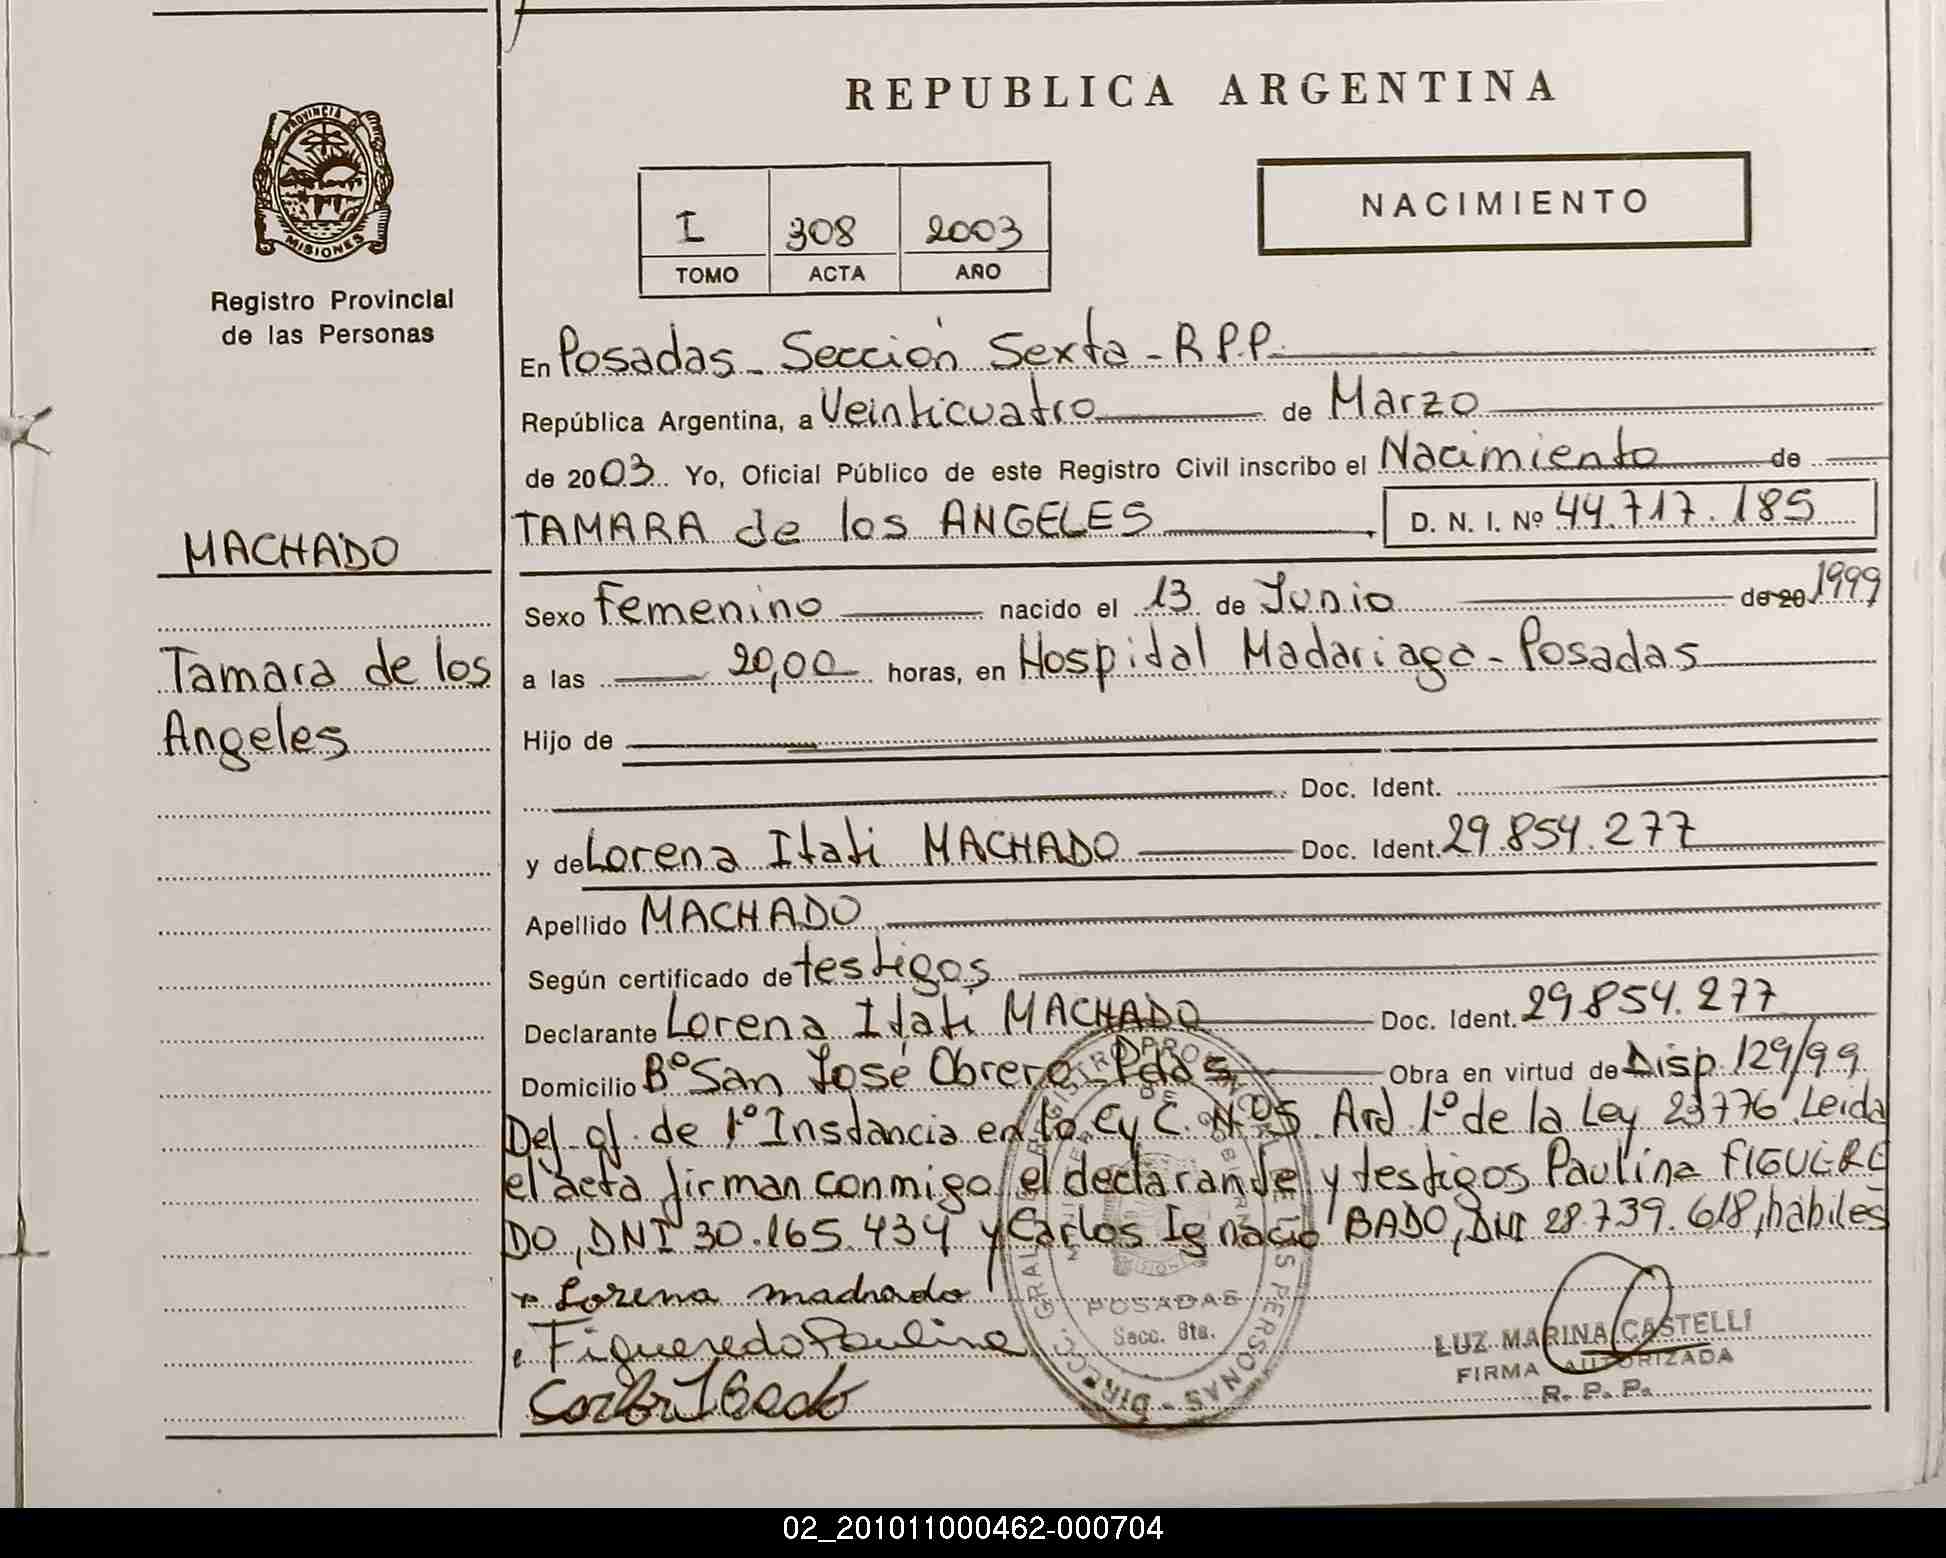 REPUBLICA ARGENTINA
PROVINCIA DE
MISIONES
Registro Provincial
de las Personas
I 308 2003
TOMO ACTA AÑO
NACIMIENTO
En Posadas - Sección Sexta - R.P.P.
República Argentina, a Veinticuatro de Marzo
de 2003. Yo, Oficial Público de este Registro Civil inscribo el Nacimiento de
TAMARA de los ANGELES D. N. I. Nº 44.717.185
MACHADO
Sexo Femenino nacido el 13 de Junio de 20 1999
Tamara de los
Angeles
a las 20,00 horas, en Hospital Madariaga - Posadas
Hijo de
Doc. Ident.
y de Lorena Itati MACHADO Doc. Ident. 29.854.277
Apellido MACHADO
Según certificado de testigos
Declarante Lorena Itati MACHADO Doc. Ident. 29.854.277
Domicilio Bº San José Obrero - Pdas Obra en virtud de Disp. 129/99
Def. of. de 1º Instancia en lo C y C. Nº 5. Art 1º de la Ley 23776 Leida
el acta firman conmigo el declarante y testigos Paulina FIGUERE
DO, DNI 30.165.434 y Carlos Ignacio BADO, DNI 28.739.618, habiles
Lorena machado
Figueredo Paulina
POSADAS
Secc. 6ta.
LUZ MARINA CASTELLI
FIRMA AUTORIZADA
R. P. P.
02_201011000462-000704